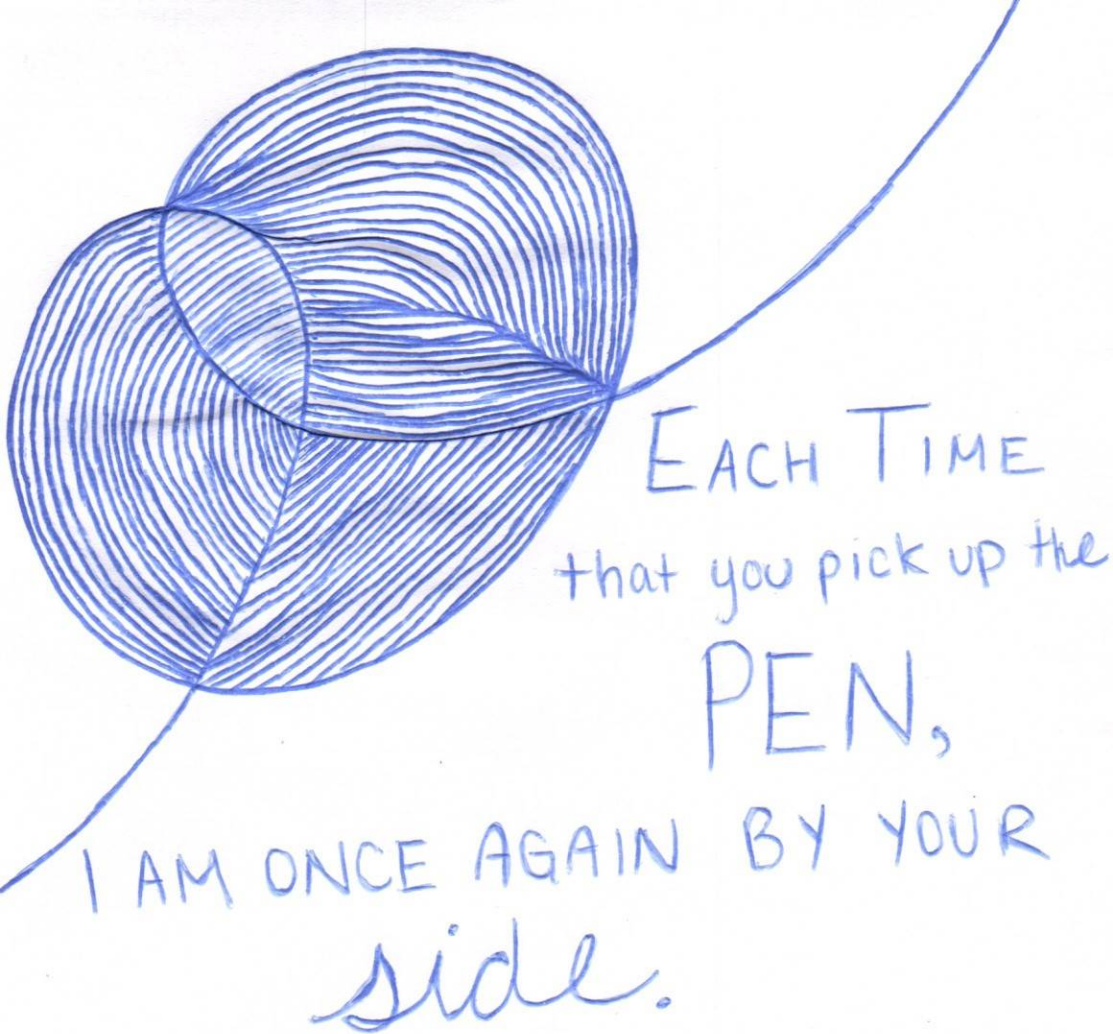 EACH TIME
that you pick up the
PEN,
I AM ONCE AGAIN BY YOUR
side.